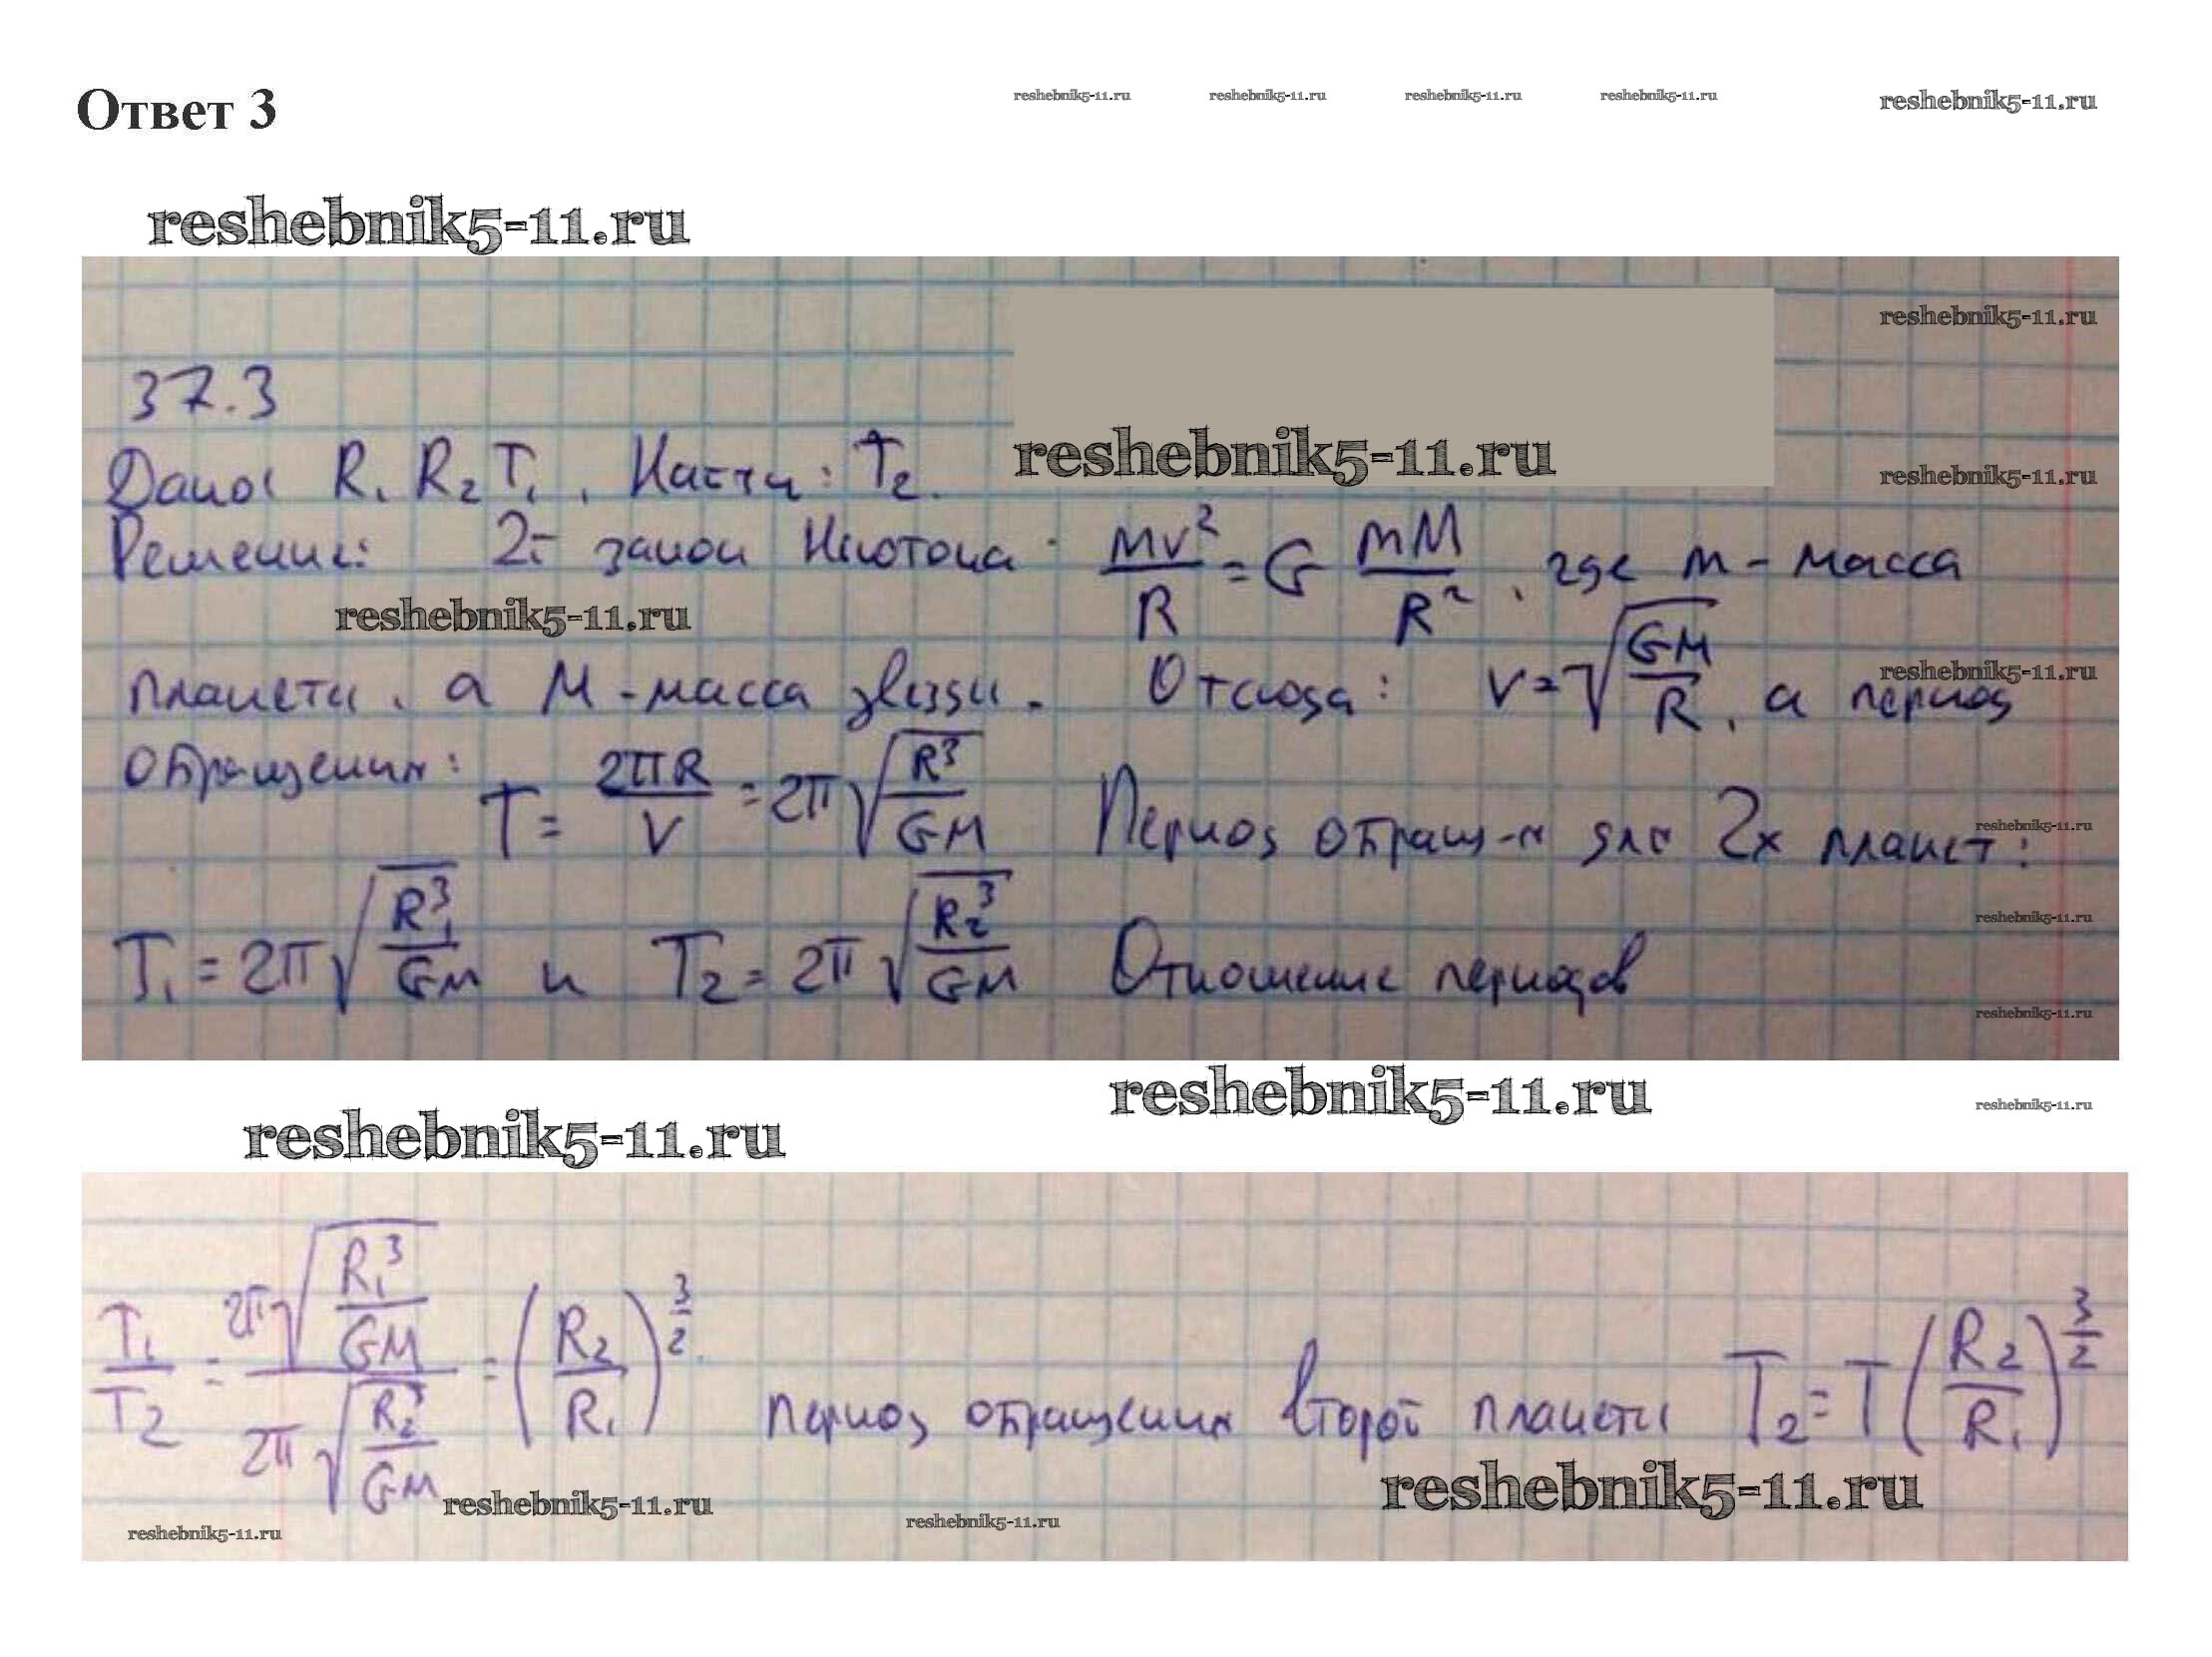 Ответ 3
reshebnik5-11.ru reshebnik5-11.ru reshebnik5-11.ru reshebnik5-11.ru reshebnik5-11.ru
reshebnik5-11.ru
reshebnik5-11.ru
37.3
Дано: R₁ R₂ T₁, Найти: T₂.
reshebnik5-11.ru
reshebnik5-11.ru
Решение: 2й закон Ньютона: mv²/R = G mM/R², где m - масса
reshebnik5-11.ru
планеты, а M - масса звезды. Отсюда: v = √(GM/R), а период
reshebnik5-11.ru
обращения: T = 2πR/v = 2π√(R³/GM) Период обращ-я для 2х планет:
reshebnik5-11.ru
T₁ = 2π√(R₁³/GM) и T₂ = 2π√(R₂³/GM) Отношение периодов
reshebnik5-11.ru
reshebnik5-11.ru
reshebnik5-11.ru
reshebnik5-11.ru
reshebnik5-11.ru
T₁/T₂ = 2π√(R₁³/GM) / 2π√(R₂³/GM) = (R₂/R₁)^(3/2). период обращения второй планеты T₂ = T(R₂/R₁)^(3/2)
reshebnik5-11.ru
reshebnik5-11.ru
reshebnik5-11.ru
reshebnik5-11.ru